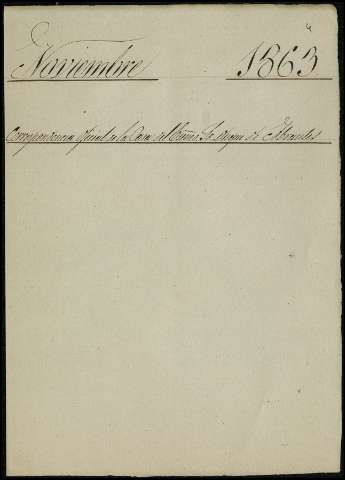 Noviembre 1863
Correspondencia oficial de la Casa del Exmo Sr. Duque de Abrantes